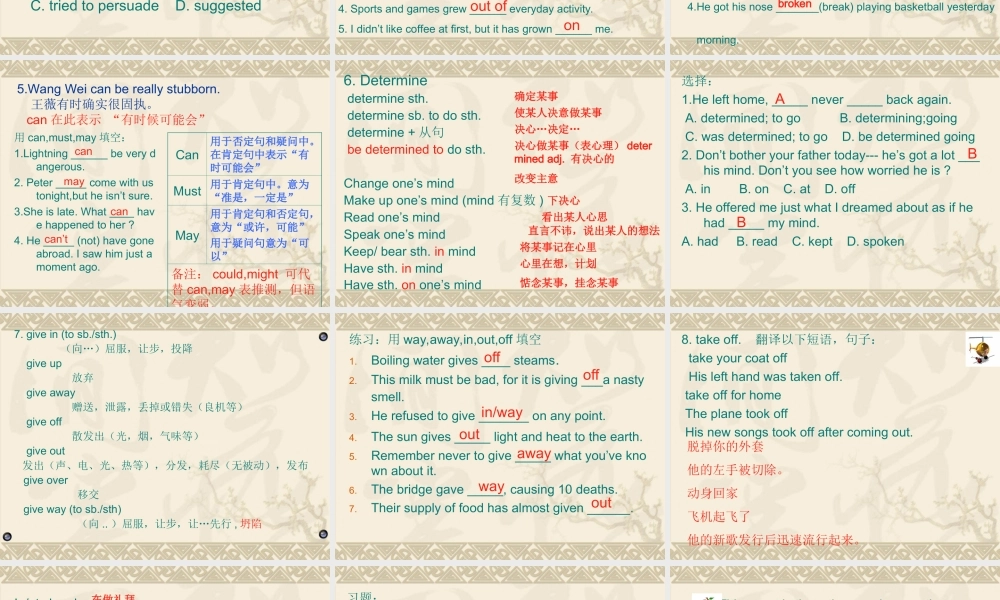 C. tried to persuade D. suggested
4. Sports and games grew out of everyday activity.
5. I didn't like coffee at first, but it has grown on me.
4.He got his nose broken (break) playing basketball yesterday
morning.
5.Wang Wei can be really stubborn.
王薇有时确实很固执。
can 在此表示 “有时候可能会”
用 can,must,may 填空：
1.Lightning can be very d
angerous.
2. Peter may come with us
tonight,but he isn't sure.
3.She is late. What can hav
e happened to her ?
4. He can't (not) have gone
abroad. I saw him just a
moment ago.
Can
用于否定句和疑问中。
在肯定句中表示“有
时可能会”
Must
用于肯定句中。意为
“准是，一定是”
May
用于肯定句和否定句，
意为“或许，可能”
用于疑问句意为“可
以”
备注： could,might 可代
替 can,may 表推测，但语
气变弱
6. Determine
determine sth. 确定某事
determine sb. to do sth. 使某人决意做某事
determine + 从句 决心…决定…
be determined to do sth. 决心做某事（表心理） deter
mined adj. 有决心的
Change one's mind 改变主意
Make up one's mind (mind 有复数 ) 下决心
Read one's mind 看出某人心思
Speak one's mind 直言不讳，说出某人的想法
Keep/ bear sth. in mind 将某事记在心里
Have sth. in mind 心里在想，计划
Have sth. on one's mind 惦念某事，挂念某事
选择：
1.He left home, A never _____ back again.
A. determined; to go B. determining;going
C. was determined; to go D. be determined going
2. Don't bother your father today--- he's got a lot B
his mind. Don't you see how worried he is ?
A. in B. on C. at D. off
3. He offered me just what I dreamed about as if he
had B my mind.
A. had B. read C. kept D. spoken
7. give in (to sb./sth.)
（向…）屈服，让步，投降
give up
放弃
give away
赠送，泄露，丢掉或错失（良机等）
give off
散发出（光，烟，气味等）
give out
发出（声、电、光、热等），分发，耗尽（无被动），发布
give over
移交
give way (to sb./sth)
（向 .. ）屈服，让步，让…先行 , 坍陷
练习：用 way,away,in,out,off 填空
1. Boiling water gives off steams.
2. This milk must be bad, for it is giving off a nasty
smell.
3. He refused to give in/way on any point.
4. The sun gives out light and heat to the earth.
5. Remember never to give away what you've kno
wn about it.
6. The bridge gave way, causing 10 deaths.
7. Their supply of food has almost given out.
8. take off. 翻译以下短语，句子：
take your coat off
His left hand was taken off.
take off for home
The plane took off
His new songs took off after coming out.
脱掉你的外套
他的左手被切除。
动身回家
飞机起飞了
他的新歌发行后迅速流行起来。
在做礼拜
习题：